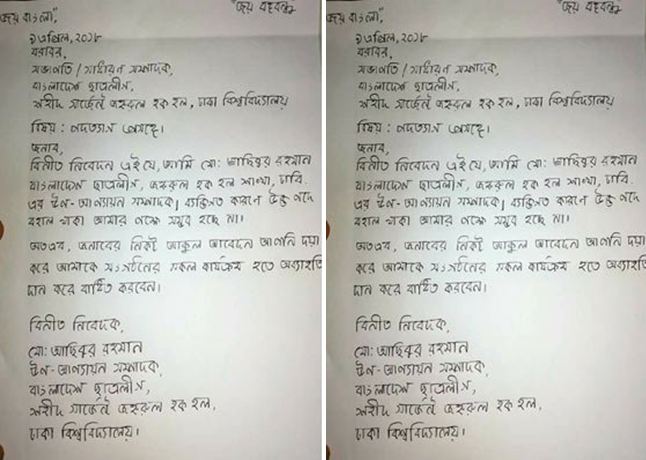 "জয় বাংলা", "জয় বঙ্গবন্ধু"
৯ এপ্রিল, ২০১৮
বরাবর,
সভাপতি / সাধারণ সম্পাদক,
বাংলাদেশ ছাত্রলীগ,
শহীদ সার্জেন্ট জহুরুল হক হল, ঢাকা বিশ্ববিদ্যালয়
বিষয় : পদত্যাগ প্রসঙ্গে।
জনাব,
বিনীত নিবেদন এই যে, আমি মো: আছিবুর রহমান
বাংলাদেশ ছাত্রলীগ, জহুরুল হক হল শাখা, ঢাবি.
এর উপ-আপ্যায়ন সম্পাদক। ব্যক্তিগত কারণে উক্ত পদে
বহাল থাকা আমার পক্ষে সম্ভব হচ্ছে না।
অতএব, জনাবের নিকট আকুল আবেদন আপনি দয়া
করে আমাকে সংগঠনের সকল কার্যক্রম হতে অব্যাহতি
দান করে বাধিত করবেন।
বিনীত নিবেদক,
মো: আছিবুর রহমান
উপ-আপ্যায়ন সম্পাদক,
বাংলাদেশ ছাত্রলীগ,
শহীদ সার্জেন্ট জহুরুল হক হল,
ঢাকা বিশ্ববিদ্যালয়।
"জয় বাংলা", "জয় বঙ্গবন্ধু"
৯ এপ্রিল, ২০১৮
বরাবর,
সভাপতি / সাধারণ সম্পাদক,
বাংলাদেশ ছাত্রলীগ,
শহীদ সার্জেন্ট জহুরুল হক হল, ঢাকা বিশ্ববিদ্যালয়
বিষয় : পদত্যাগ প্রসঙ্গে।
জনাব,
বিনীত নিবেদন এই যে, আমি মো: আছিবুর রহমান
বাংলাদেশ ছাত্রলীগ, জহুরুল হক হল শাখা, ঢাবি.
এর উপ-আপ্যায়ন সম্পাদক। ব্যক্তিগত কারণে উক্ত পদে
বহাল থাকা আমার পক্ষে সম্ভব হচ্ছে না।
অতএব, জনাবের নিকট আকুল আবেদন আপনি দয়া
করে আমাকে সংগঠনের সকল কার্যক্রম হতে অব্যাহতি
দান করে বাধিত করবেন।
বিনীত নিবেদক,
মো: আছিবুর রহমান
উপ-আপ্যায়ন সম্পাদক,
বাংলাদেশ ছাত্রলীগ,
শহীদ সার্জেন্ট জহুরুল হক হল,
ঢাকা বিশ্ববিদ্যালয়।